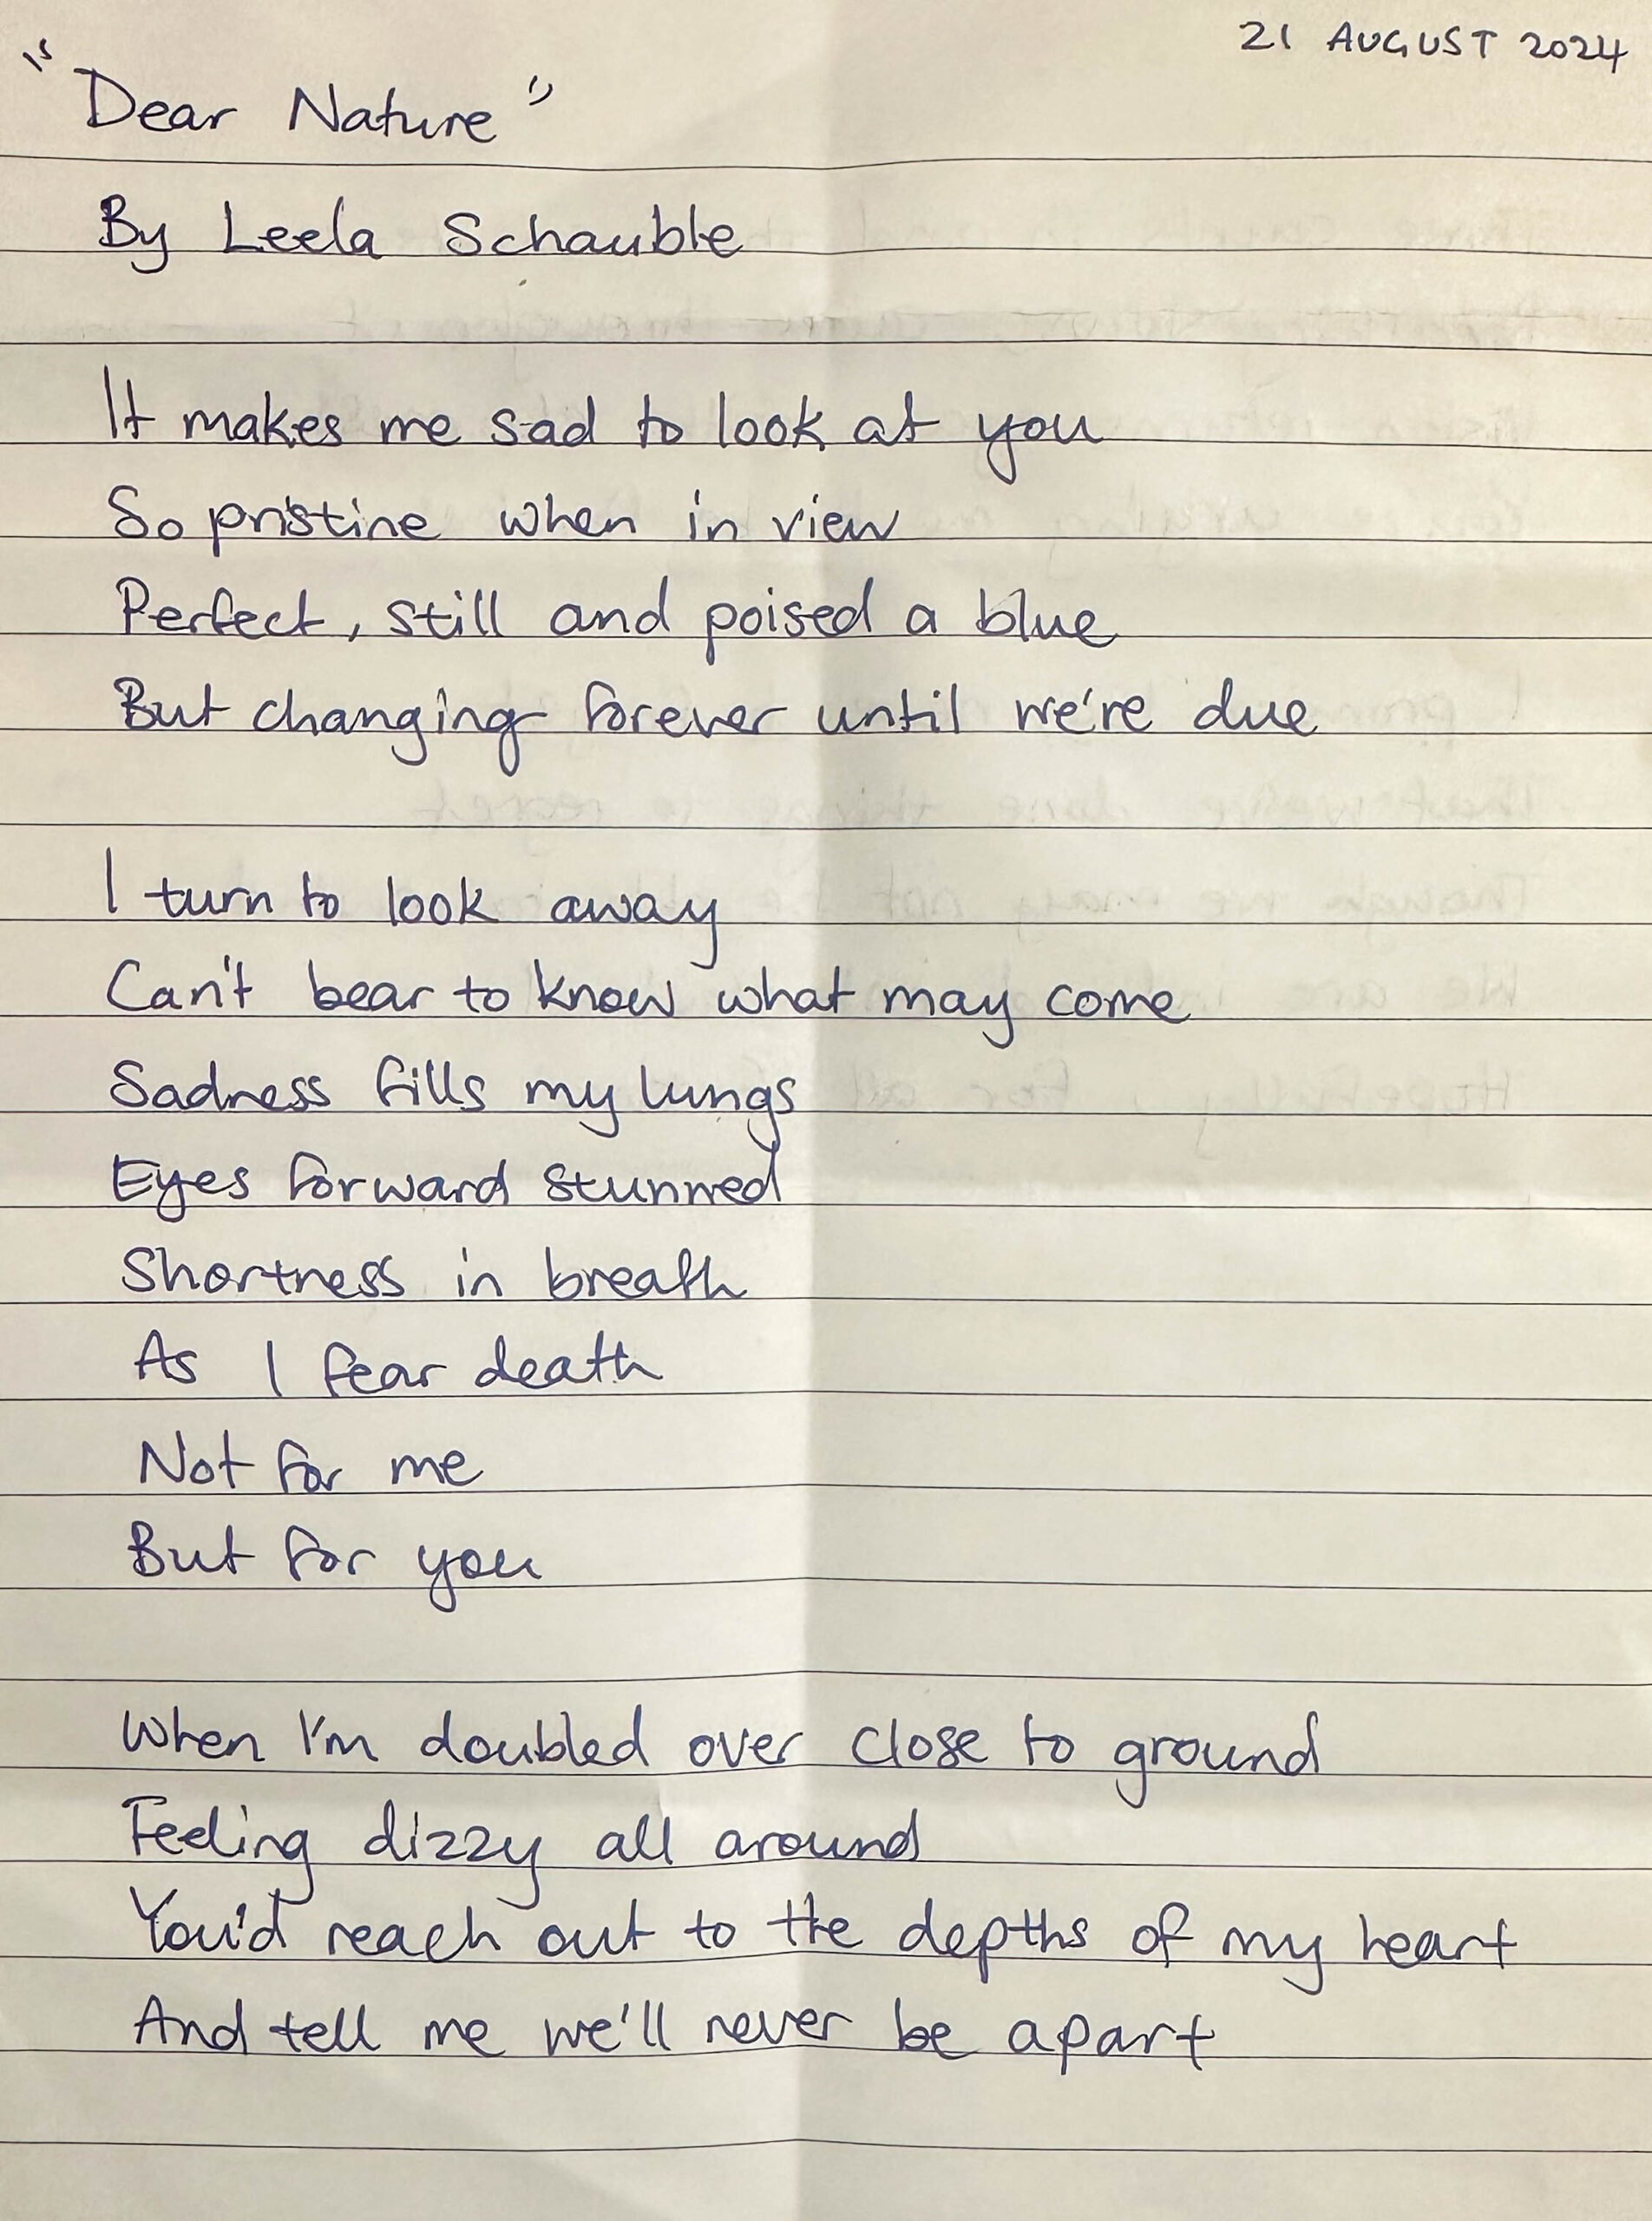 21 AUGUST 2024
"Dear Nature"
By Leela Schauble
It makes me sad to look at you
So pristine when in view
Perfect, still and poised a blue
But changing forever until we're due
I turn to look away
Can't bear to know what may come
Sadness fills my lungs
Eyes forward stunned
Shortness in breath
As I fear death
Not for me
But for you
When I'm doubled over close to ground
Feeling dizzy all around
You'd reach out to the depths of my heart
And tell me we'll never be apart